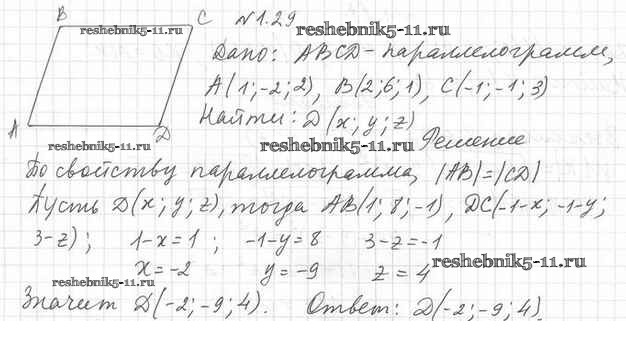 B C №1.29
reshebnik5-11.ru reshebnik5-11.ru
Дано: ABCD – параллелограмм,
A(1;-2;2), B(2;6;1), C(-1;-1;3)
Найти: D(x;y;z)
A D
reshebnik5-11.ru reshebnik5-11.ru
Решение
По свойству параллелограмма, |AB|=|CD|
Пусть D(x;y;z), тогда AB(1;8;-1), DC(-1-x;-1-y;
3-z); 1-x=1; -1-y=8 3-z=-1
x=-2 y=-9 z=4
reshebnik5-11.ru reshebnik5-11.ru
Значит D(-2;-9;4). Ответ: D(-2;-9;4).